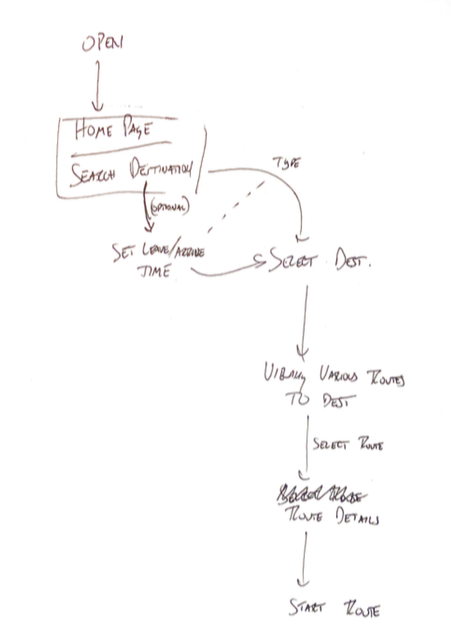 OPEN
HOME PAGE
SEARCH DESTINATION
TYPE
(OPTIONAL)
SET LEAVE/ARRIVE
TIME
SELECT DEST.
VARIOUS ROUTES
TO DEST
SELECT ROUTE
ROUTE DETAILS
START ROUTE